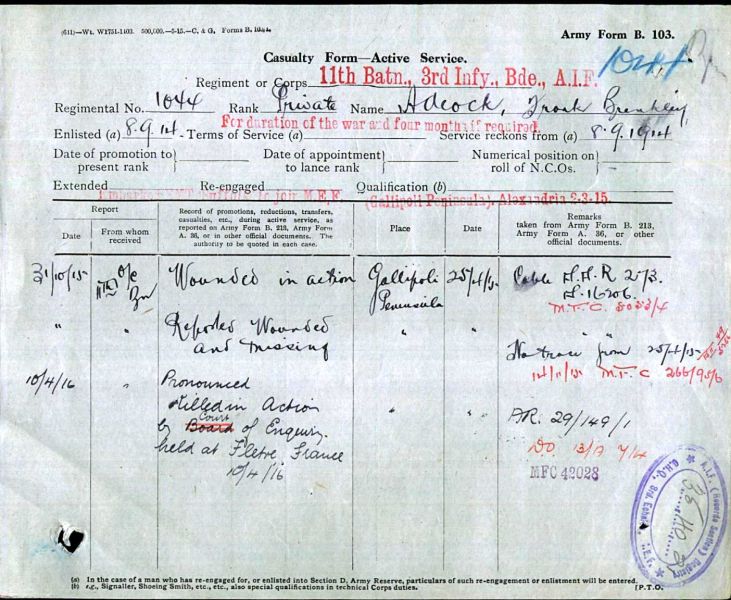 (611)—Wt. W1751-1403. 500,000.—5-15.—C. & G. Forms B. 103.
Army Form B. 103.
1044
Casualty Form—Active Service.
Regiment or Corps 11th Batn., 3rd Infy., Bde., A.I.F.
Regimental No. 1044 Rank Private Name Adcock, Frank
For duration of the war and four months if required.
Enlisted (a) 8.9.14. Terms of Service (a) Service reckons from (a) 8.9.1914
Date of promotion to present rank
Date of appointment to lance rank
Numerical position on roll of N.C.Os.
Extended Re-engaged Qualification (b)
to join M.E.F. (Gallipoli Peninsula). Alexandria 2.3.15.
Report
Date
From whom received
Record of promotions, reductions, transfers, casualties, etc., during active service, as reported on Army Form B. 213, Army Form A. 36, or in other official documents. The authority to be quoted in each case.
Place
Date
Remarks
taken from Army Form B. 213, Army Form A. 36, or other official documents.
31/10/15 O/C 11th Bn Wounded in action Gallipoli Peninsula 25/4/15 Cable
M.T.C.
" " Reported Wounded and missing " "
No trace from 25/4/15
M.T.C 266/95/6
10/4/16 " Pronounced
Killed in Action
by Board Court of Enquiry
held at Fletre France
10/4/16
" "
AR. 29/149/1
DO. 13/17 4/4
MFC 42028
(a) In the case of a man who has re-engaged for, or enlisted into Section D, Army Reserve, particulars of such re-engagement or enlistment will be entered.
(b) e.g., Signaller, Shoeing Smith, etc., etc., also special qualifications in technical Corps duties.
[P.T.O.